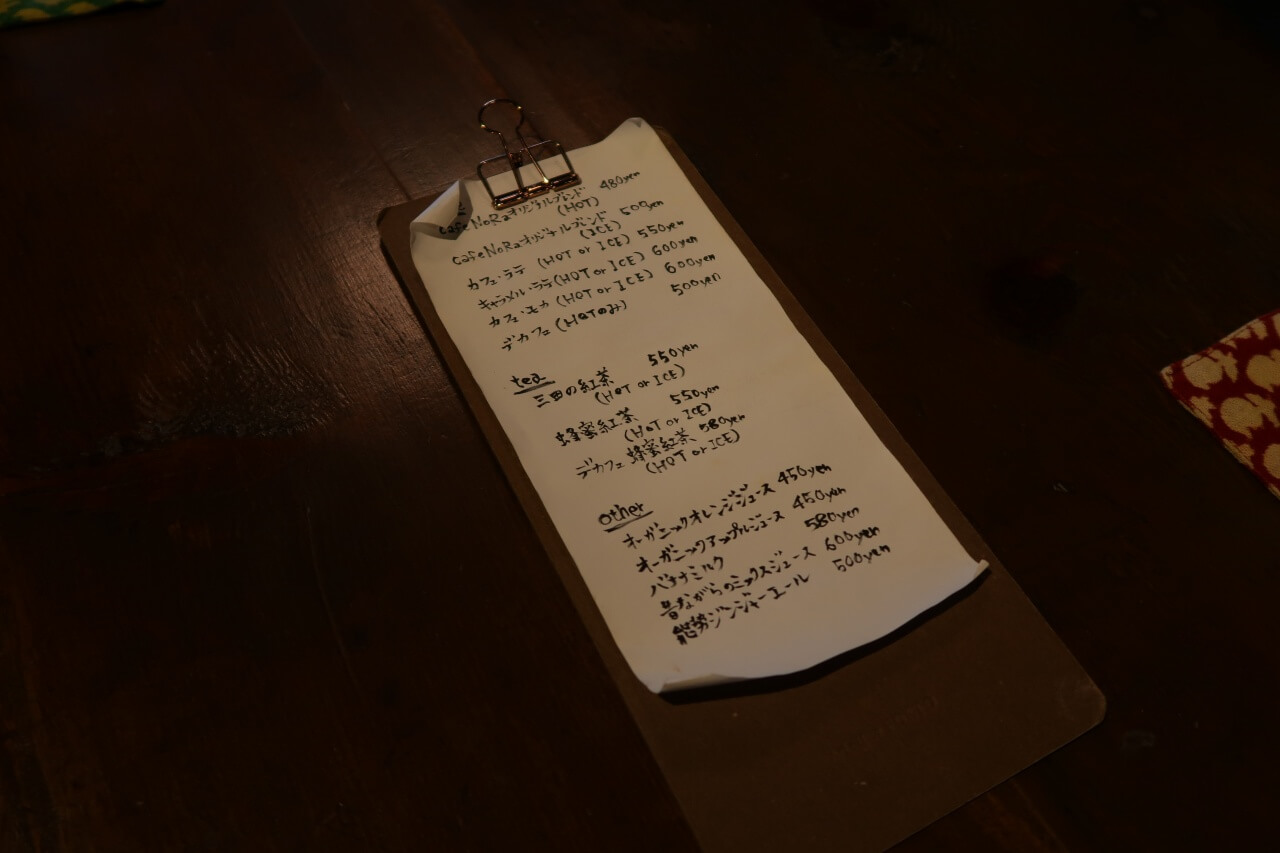 cafe NoRaオリジナルブレンド 480yen
(HOT)
cafe NoRaオリジナルブレンド 500yen
(ICE)
カフェ・ラテ (HOT or ICE) 550yen
キャラメル・ラテ(HOT or ICE) 600yen
カフェ・モカ (HOT or ICE) 600yen
デカフェ (HOTのみ) 500yen
tea
三田の紅茶 550yen
(HOT or ICE)
蜂蜜紅茶 550yen
(HOT or ICE)
デカフェ 蜂蜜紅茶 580yen
(HOT or ICE)
other
オーガニックオレンジジュース 450yen
オーガニックアップルジュース 450yen
バナナミルク 580yen
昔ながらのミックスジュース 600yen
能勢ジンジャーエール 500yen